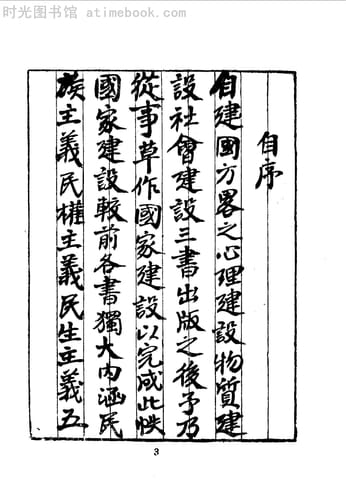 时光图书馆 - atimebook.com
自序
自建國方畧之心理建設物質建
設社會建設三書出版之後予乃
從事草作國家建設以完成此帙
國家建設較前各書獨大內涵民
族主義民權主義民生主義五
3